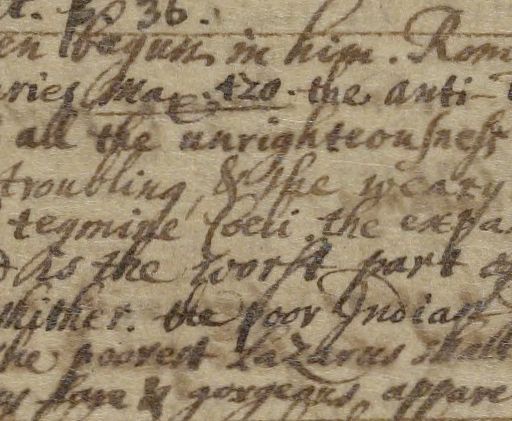 36.
en begun in him. Rom
ries Max. 420. the anti-
all the unrighteousness
troubling, & the weary
tegmine Coeli the expa
is the worst part of
thither. the poor Indian
he poorest Lazarus shall
fare & gorgeous appare